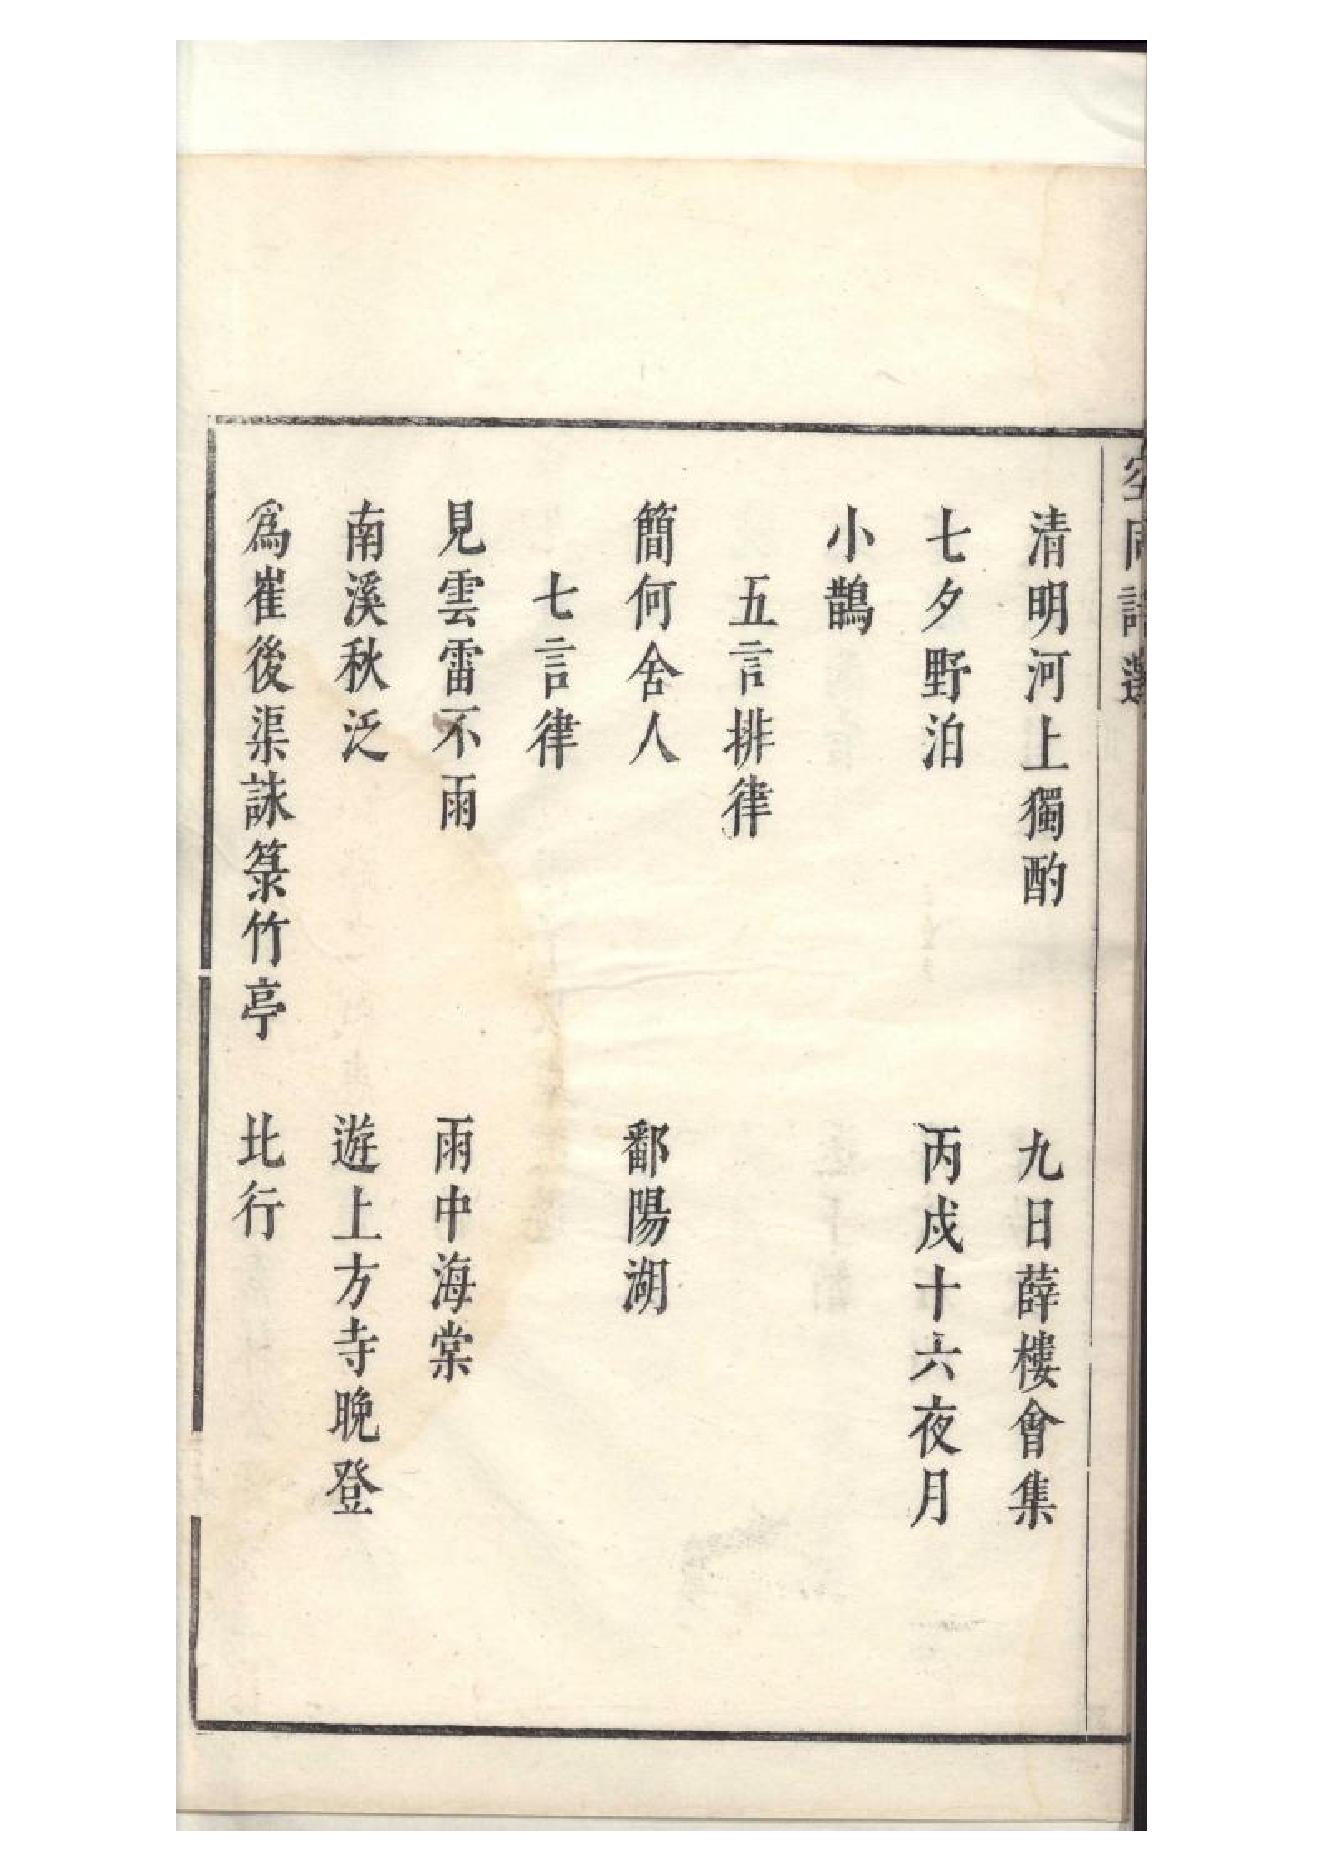 空同詩選
清明河上獨酌　九日薛樓會集
七夕野泊　丙戌十六夜月
小鵲
五言排律
簡何舍人　鄱陽湖
七言律
見雲雷不雨　雨中海棠
南溪秋泛　遊上方寺晚登
爲崔後渠詠箓竹亭　北行